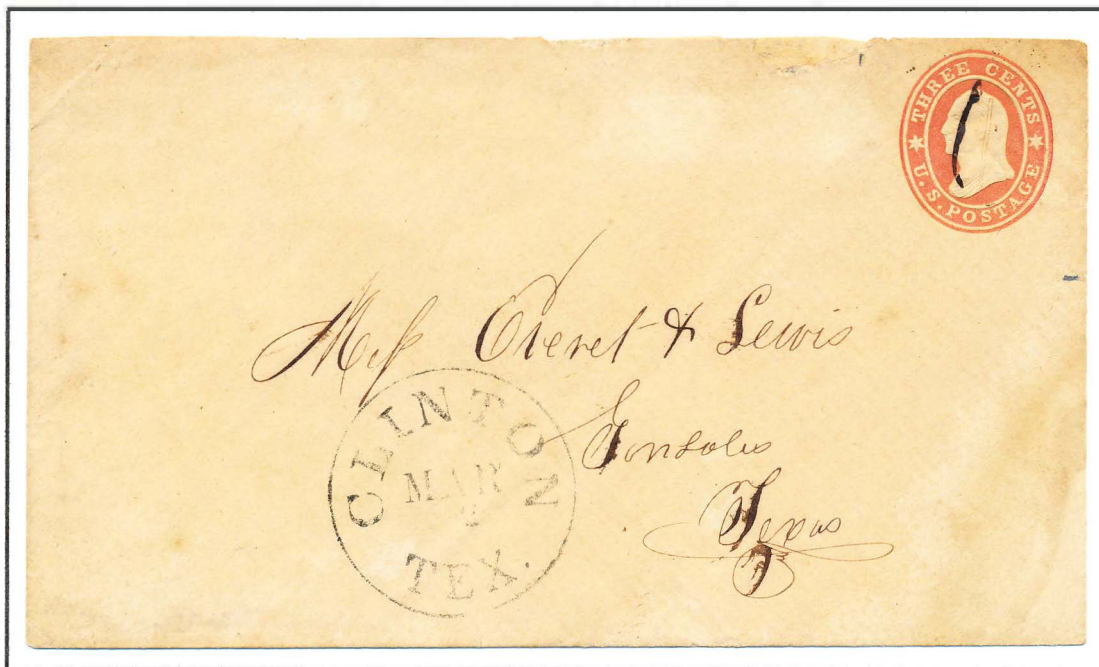 THREE CENTS
U.S. POSTAGE
Mess Everet & Lewis
Gonzales
Texas
CLINTON
MAR
TEX.